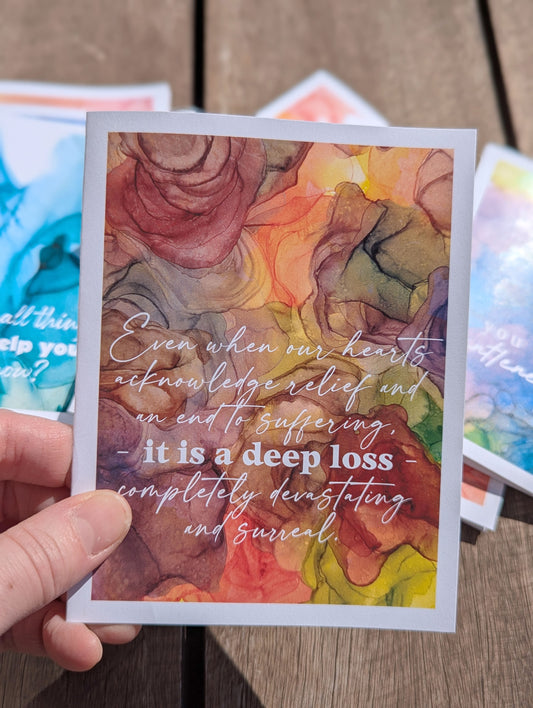 Even when our hearts
acknowledge relief and
an end to suffering,
- it is a deep loss -
completely devastating
and surreal.
all thin
elp you
now?
YOU